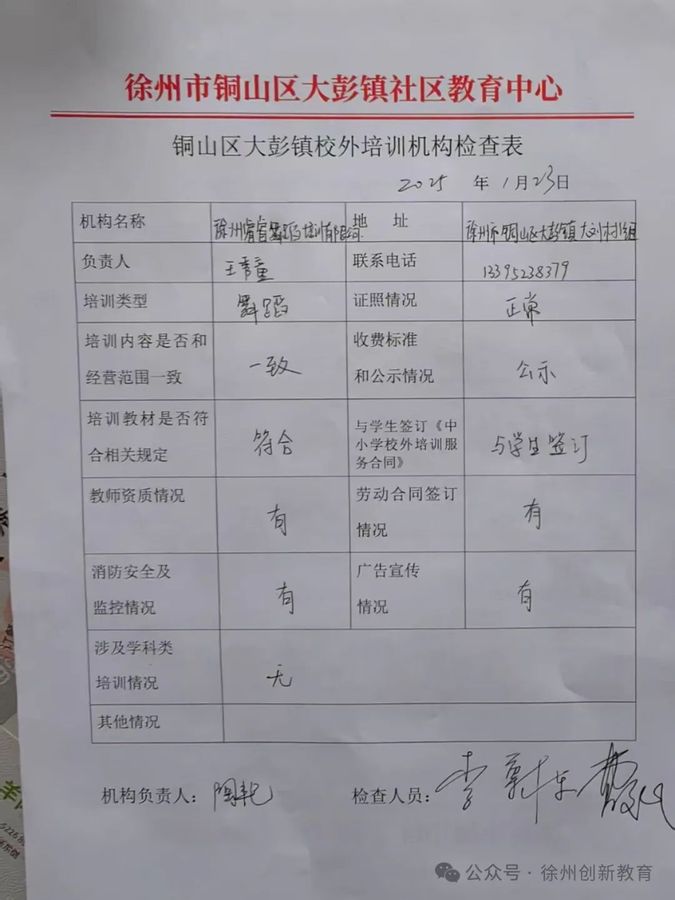 徐州市铜山区大彭镇社区教育中心
铜山区大彭镇校外培训机构检查表
2025 年 1月23日
机构名称 徐州 培训有限公司 地 址 徐州市铜山区大彭镇大刘村
负责人 王 童 联系电话 13395238379
培训类型 舞蹈 证照情况 正常
培训内容是否和
经营范围一致 一致 收费标准
和公示情况 公示
培训教材是否符
合相关规定 符合 与学生签订《中
小学校外培训服
务合同》 与学生签订
教师资质情况 有 劳动合同签订
情况 有
消防安全及
监控情况 有 广告宣传
情况 有
涉及学科类
培训情况 无
其他情况
机构负责人: 检查人员: 李
公众号·徐州创新教育